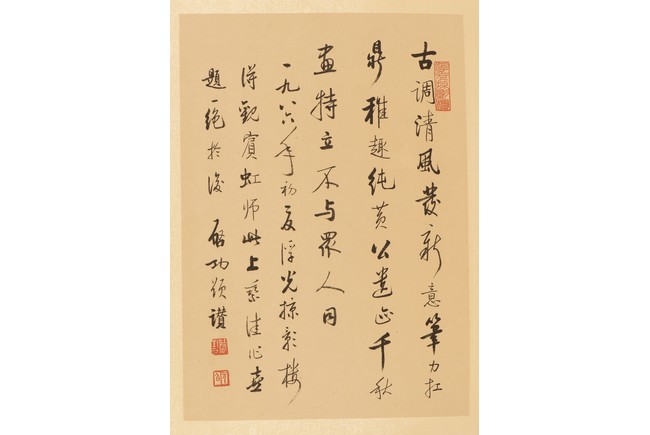 古调清风发新意笔力扛
鼎稚趣纯黄公遗迹千秋
画特立不与众人同
一九八六年初夏浮光掠影楼
得观宾虹师此上乘佳作喜
题一绝于后 启功颂赞